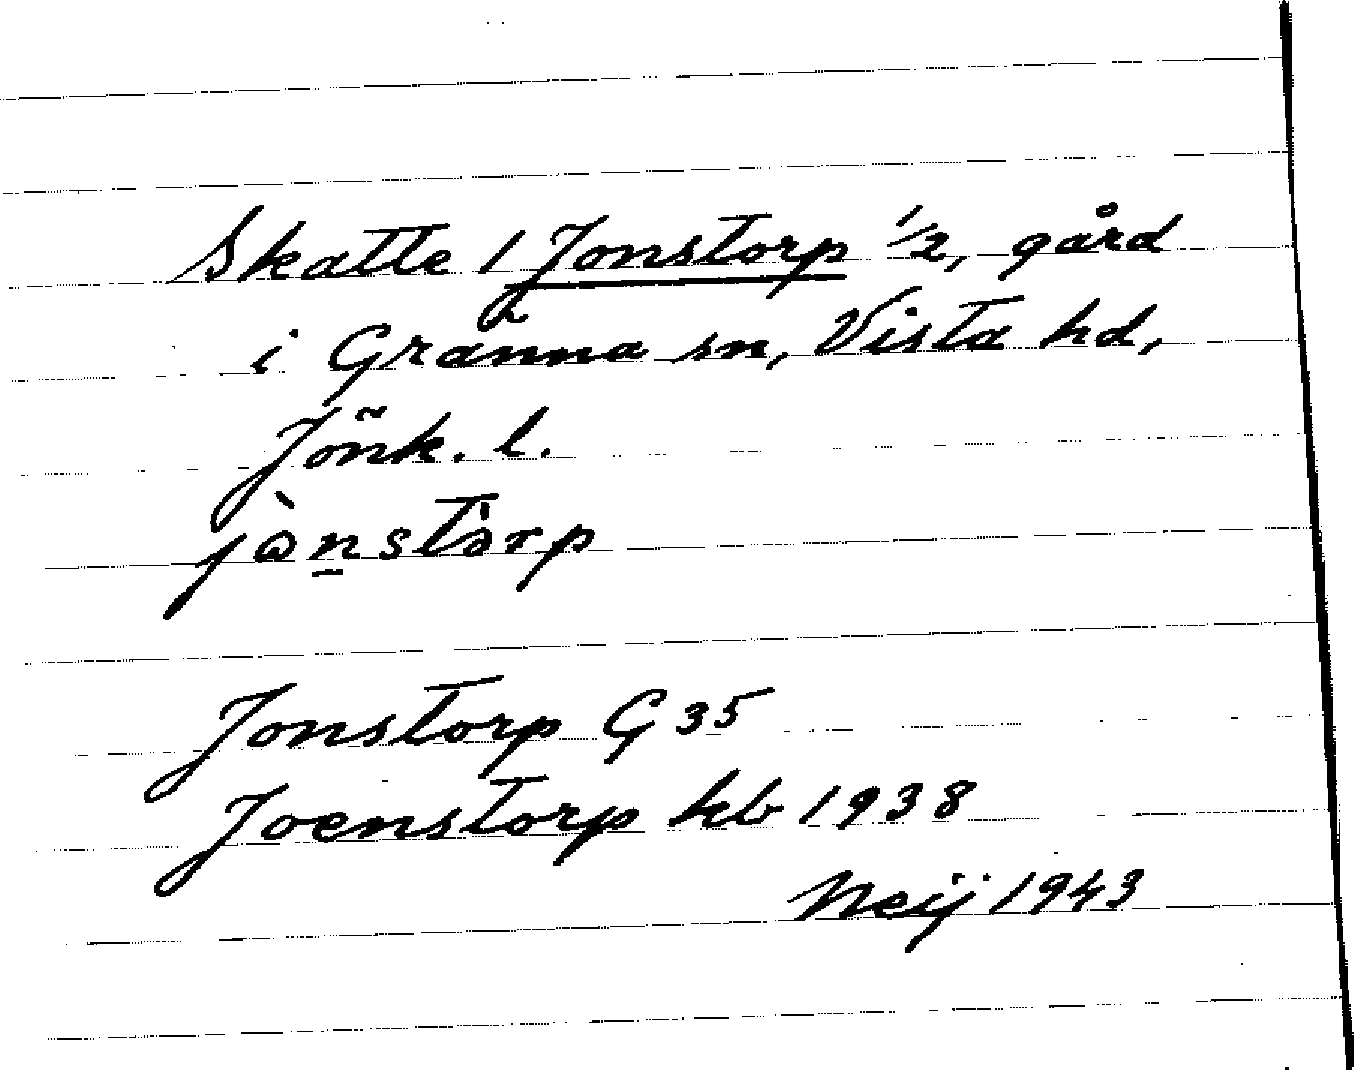 Skatte 1 Jonstorp 1/2, gård
i Gränna sn, Vista hd,
Jönk. l.
jònstòrp
Jonstorp G 35
Joenstorp kb 1938
Neij 1943